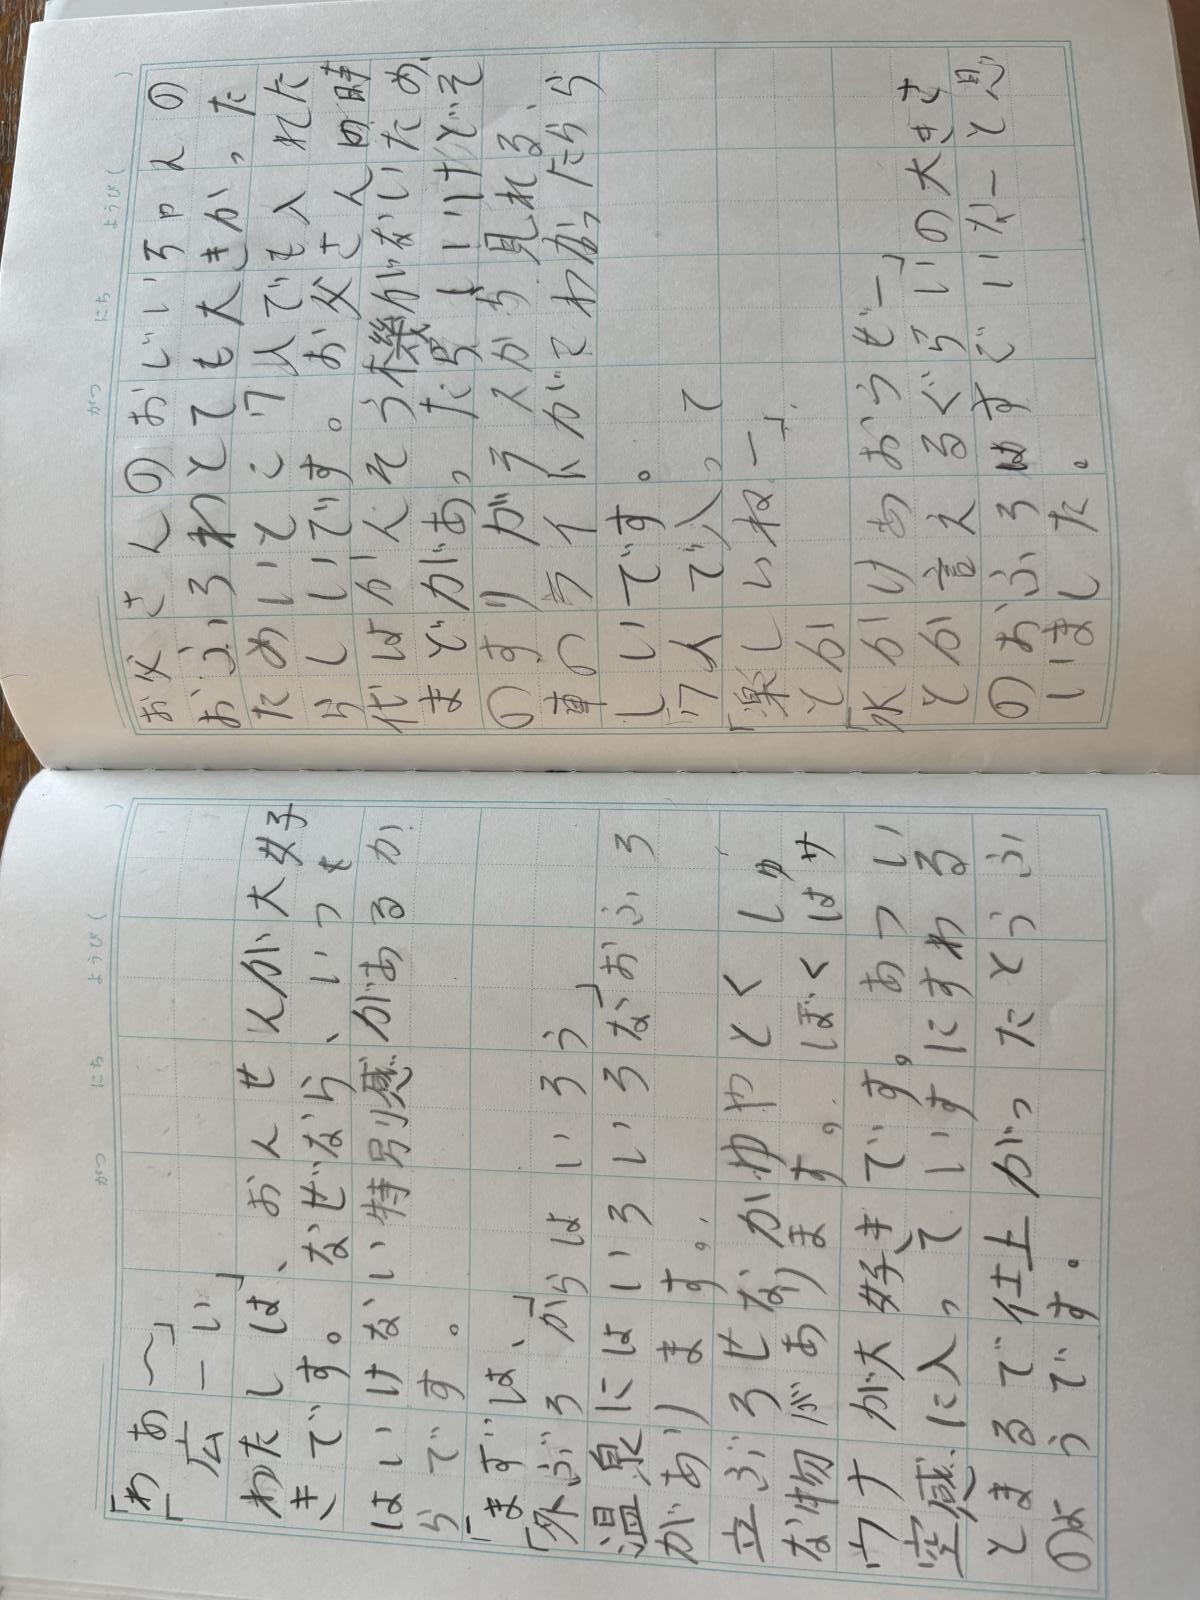 がつ にち ようび( )
「わあ〜」
「広ーい」
わたしは、おんせんが大好
きです。なぜなら、いつも
はいけない特別感があるか
らです。
「まずは、」
「外ぶろからはいろう」
温泉にはいろいろなおふろ
があります。
立ぶろせなかゆやとくしゅ
な物があります。ぼくはサ
ウナが大好きです。あつい
空感に入っていすにすわる
とまるで仕上がったとうふ
のようです。
がつ にち ようび( )
お父さんのおじいちゃんの
おふろわとても大きかった
ためいとこ7人でも入れた
らしいです。お父さんの時
代はかんそう機がないため、
まどがあったらしいけどそ
のすりガラスから見れる、
車のライトがてわかったら
しいです。
「7人で入って
「楽しいねー」
とか
「水かけあおうぜー」
とか言えるぐらいの大きさ
のおふろはすごいなーと思
いました。